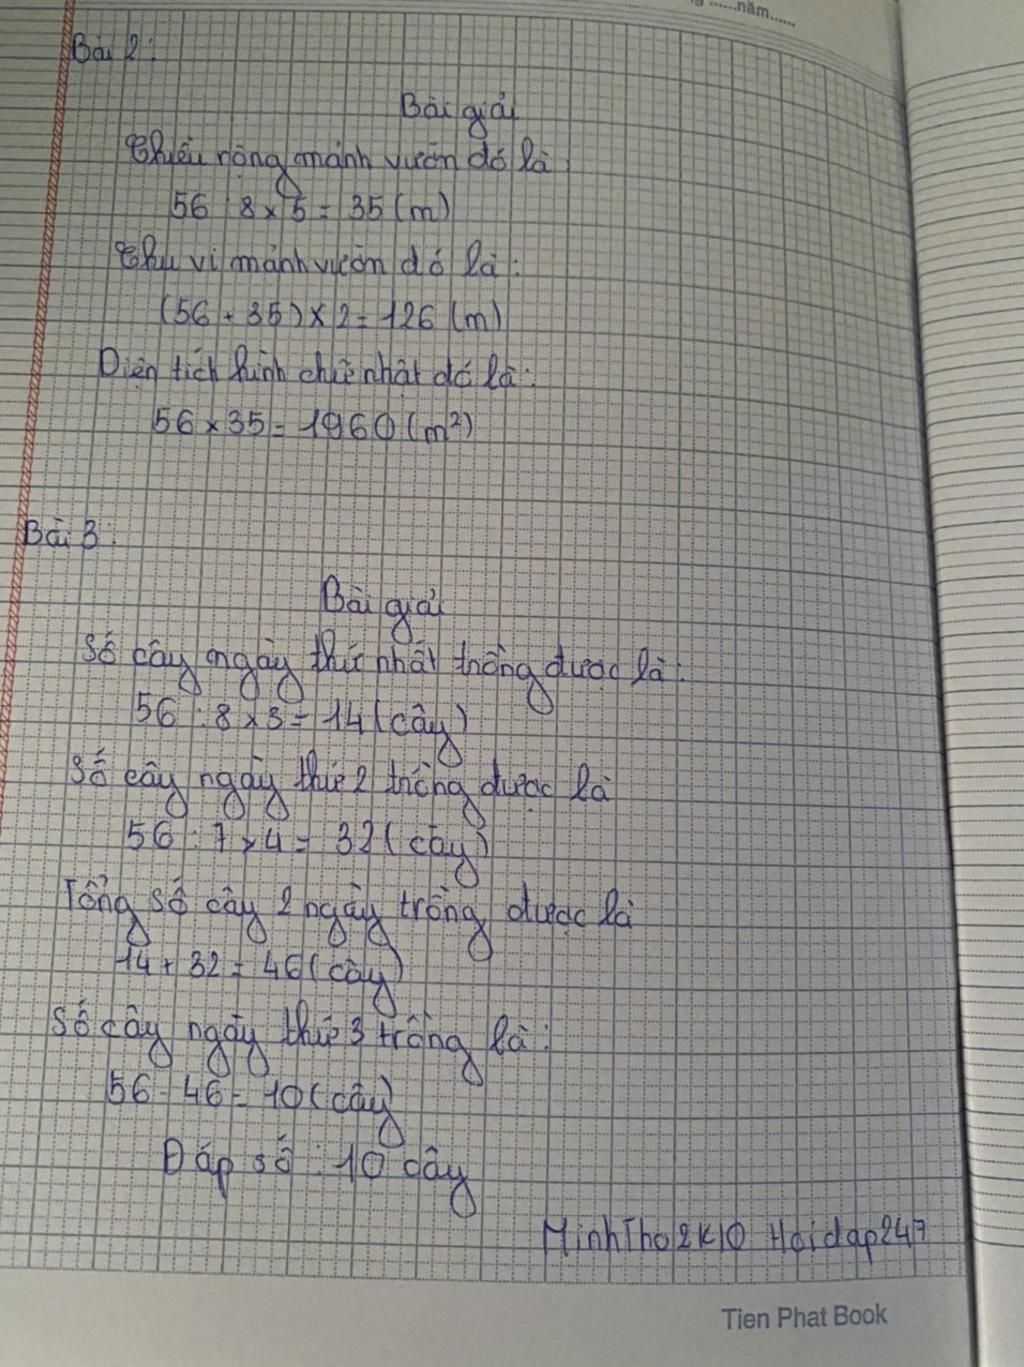 ......năm......
Bài 2:
Bài giải
Chiều rộng mảnh vườn đó là
56 : 8 x 5 = 35 (m)
Chu vi mảnh vườn đó là:
(56 + 35) x 2 = 126 (m)
Diện tích hình chữ nhật đó là:
56 x 35 = 1960 (m²)
Bài 3:
Bài giải
Số cây ngày thứ nhất trồng được là:
56 : 8 x 3 = 14 (cây)
Số cây ngày thứ 2 trồng được là
56 : 7 x 4 = 32 (cây)
Tổng số cây 2 ngày trồng được là
14 + 32 = 46 (cây)
Số cây ngày thứ 3 trồng là:
56 - 46 = 10 (cây)
Đáp số : 10 cây
MinhTho2K10 Hoidap247
Tien Phat Book